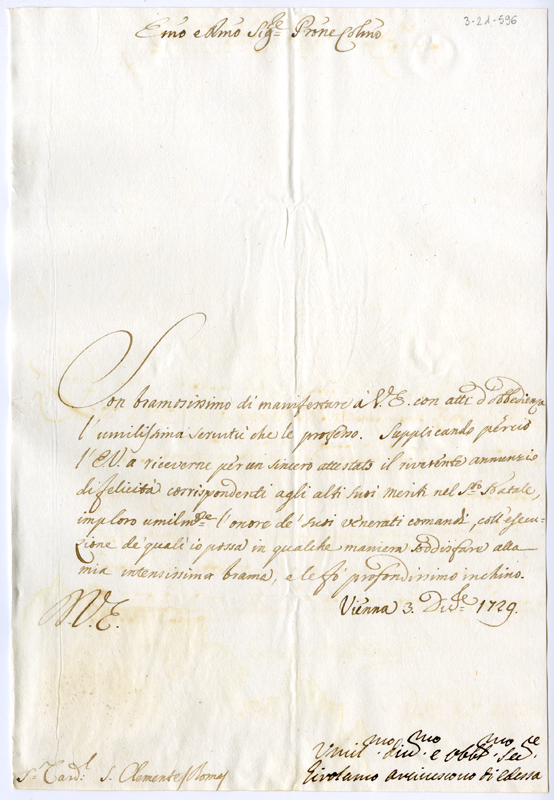 3-21-596
Emo e Rmo Sig.re Prone Colmo
Son bramosissimo di manifestare à V.E. con atti d'obedienza
l'umilissima servitù che le professo. Supplicando perciò
l'E.V. a riceverne per un sincero attestato il riverente annunzio
di felicità corrispondenti agli alti suoi meriti nel Sto Natale,
imploro umilmte l'onore de' suoi venerati comandi, coll'esecu-
zione de' quali io possa in qualche maniera sodisfare alla
mia intensissima brama, e le fò profondissimo inchino.
D.V.E. Vienna 3. Dicre 1729.
Umilmo Divmo e obbmo Sere
Sr Cardl S. Clemente Roma Girolamo arcivescovo di Edessa